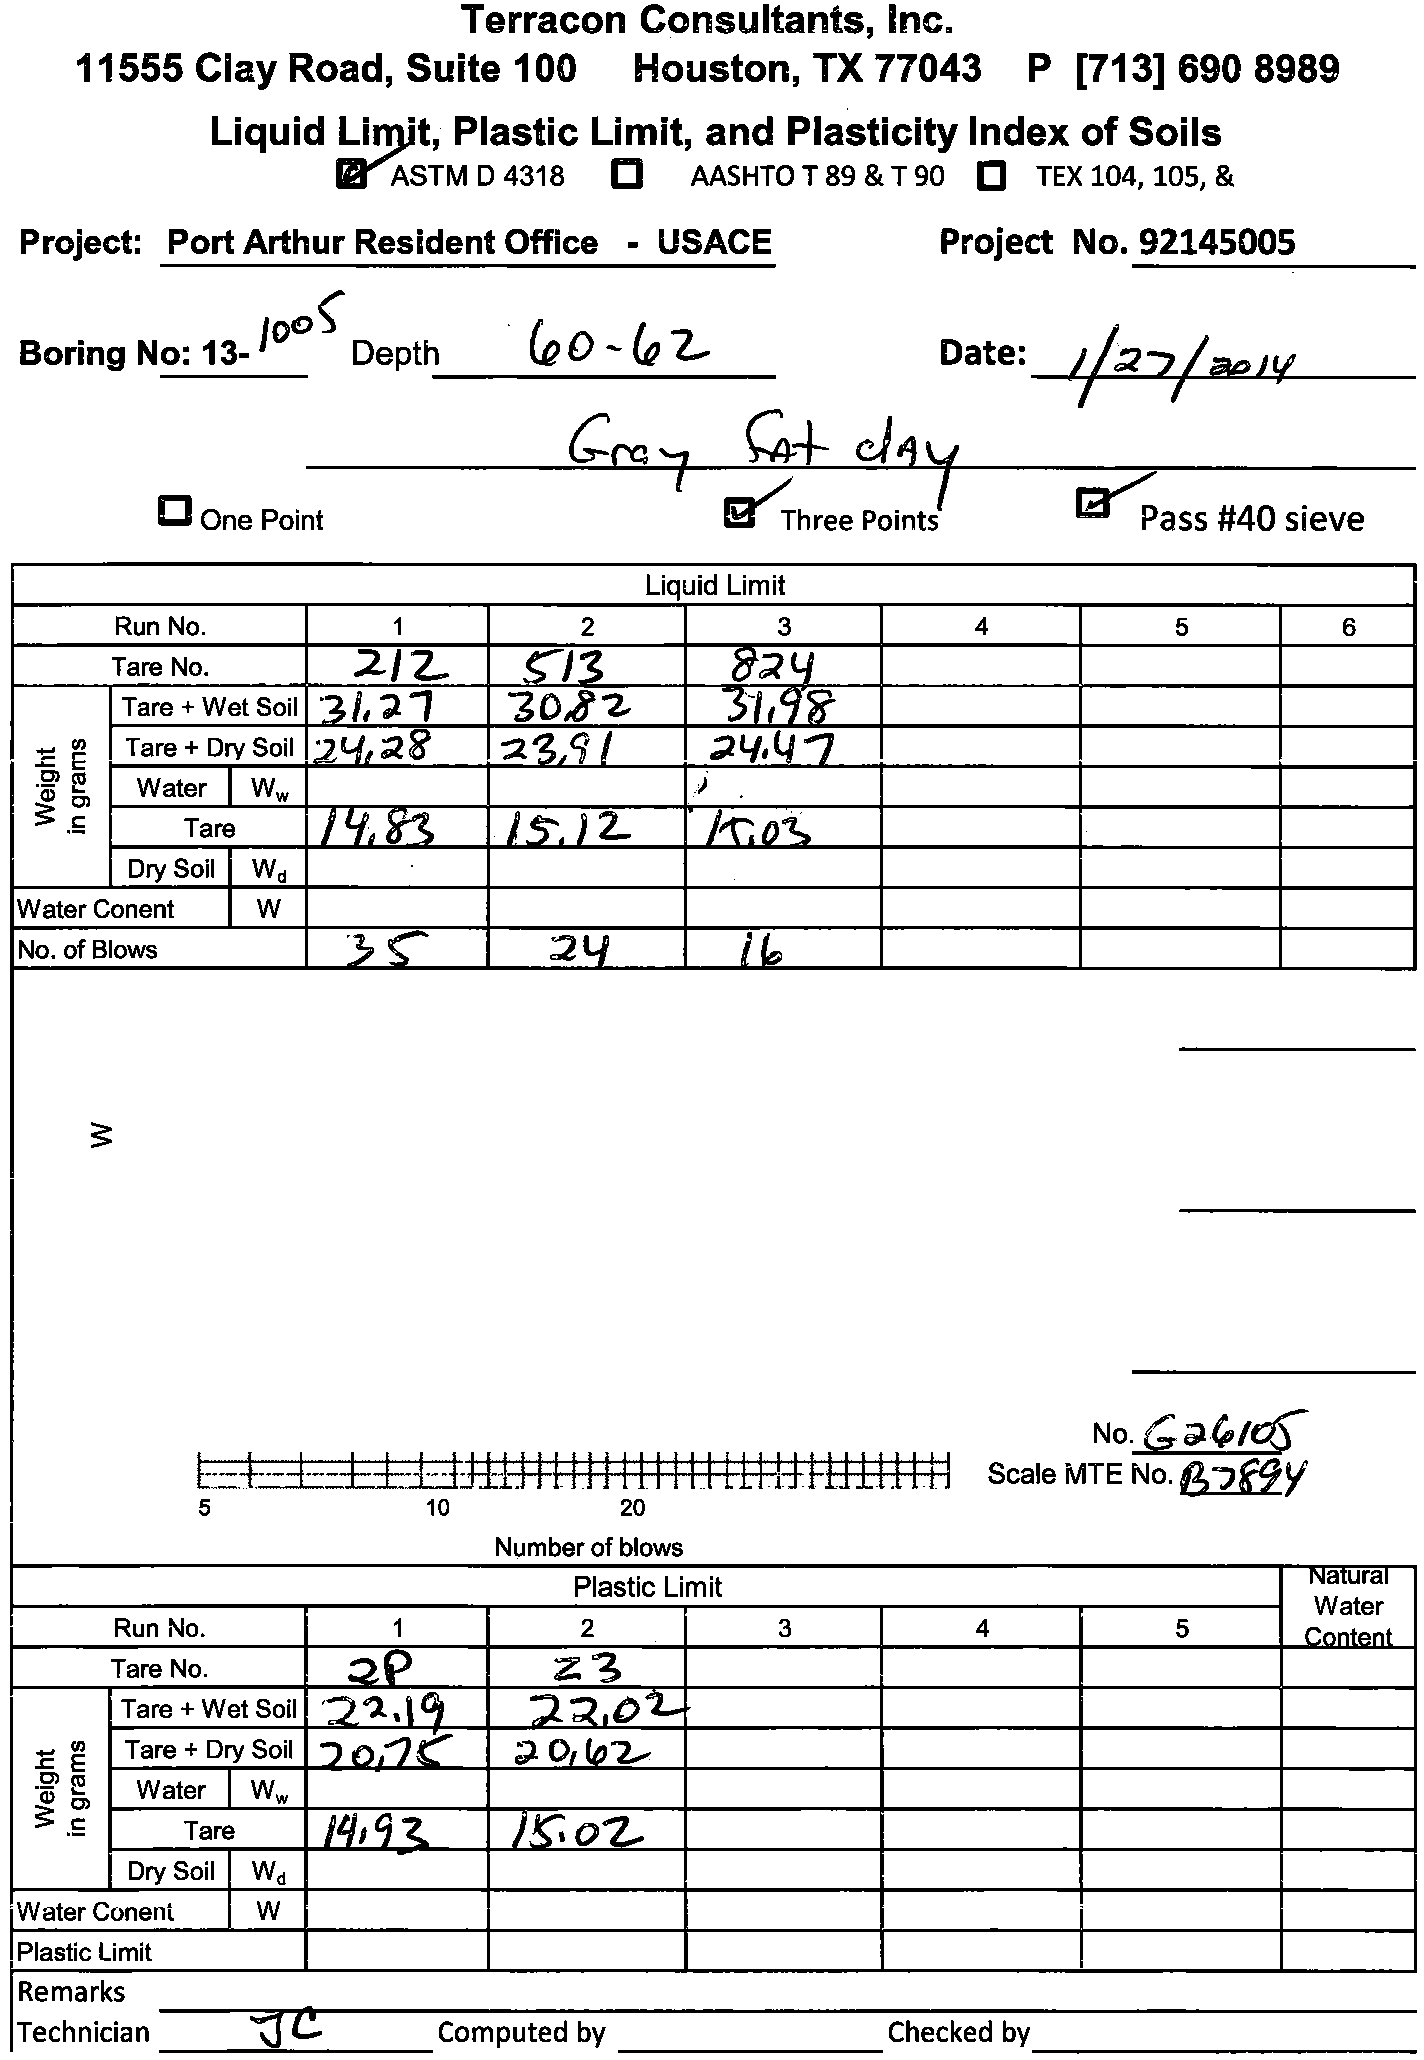 Terracon Consultants, Inc.
11555 Clay Road, Suite 100 Houston, TX 77043 P [713] 690 8989
Liquid Limit, Plastic Limit, and Plasticity Index of Soils
ASTM D 4318 AASHTO T 89 & T 90 TEX 104, 105, &
Project: Port Arthur Resident Office - USACE Project No. 92145005
Boring No: 13-1005 Depth 60-62 Date: 1/27/2014
Gray FAt clAy
One Point Three Points Pass #40 sieve
Liquid Limit
Run No. 1 2 3 4 5 6
Tare No. 212 513 824
Weight in grams
Tare + Wet Soil 31.27 30.82 31.98
Tare + Dry Soil 24.28 23.91 24.47
Water Ww
Tare 14.83 15.12 15.03
Dry Soil Wd
Water Conent W
No. of Blows 35 24 16
W
No. G26105
Scale MTE No. B7894
5 10 20
Number of blows
Plastic Limit Natural Water Content
Run No. 1 2 3 4 5
Tare No. 2P Z3
Weight in grams
Tare + Wet Soil 22.19 22.02
Tare + Dry Soil 20.75 20.62
Water Ww
Tare 14.93 15.02
Dry Soil Wd
Water Conent W
Plastic Limit
Remarks
Technician JC Computed by Checked by